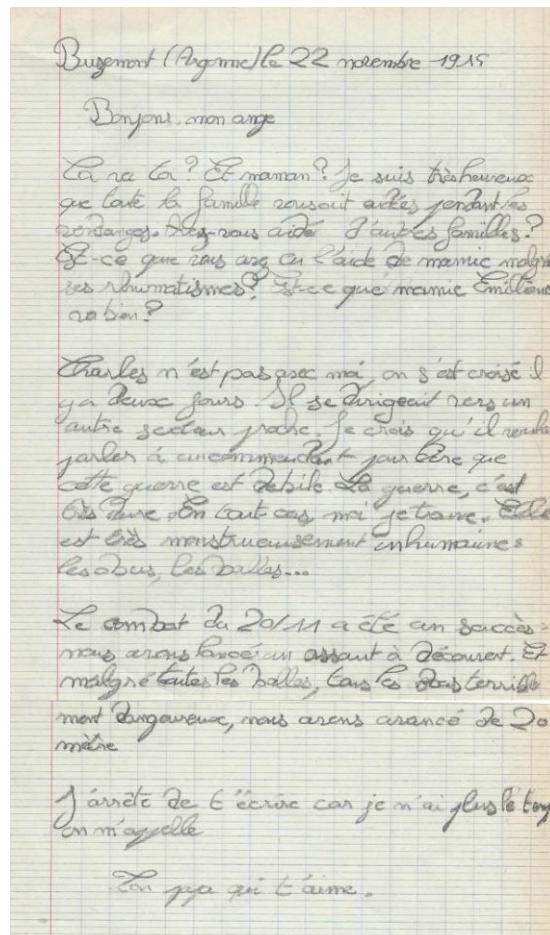 Buzemont (Argonne) le 22 novembre 1915
Bonjour mon ange
Ca va toi? Et maman? Je suis très heureux
que toute la famille vous ait aidés pendant les
vendanges. Avez-vous aidé d'autres familles?
Est-ce que vous avez eu l'aide de mamie malgré
ses rhumatismes? Est-ce que mamie Emilienne
va bien?
Charles n'est pas avec moi, on s'est croisé il
y a deux jours. Il se dirigeait vers un
autre secteur proche. Je crois qu'il voulait
parler à un commandant pour dire que
cette guerre est débile. La guerre, c'est
très dure. En tout cas, moi je trouve. Elle
est très monstrueusement inhumaine:
les obus, les balles...
Le combat du 20/11 a été un succès:
nous avons lancé un assaut à découvert. Et
malgré toutes les balles, tous les obus terrible
ment dangeureux, nous avons avancé de 20
mètre
J'arrête de t'écrire car je n'ai plus le temps
on m'appelle
Ton papa qui t'aime.